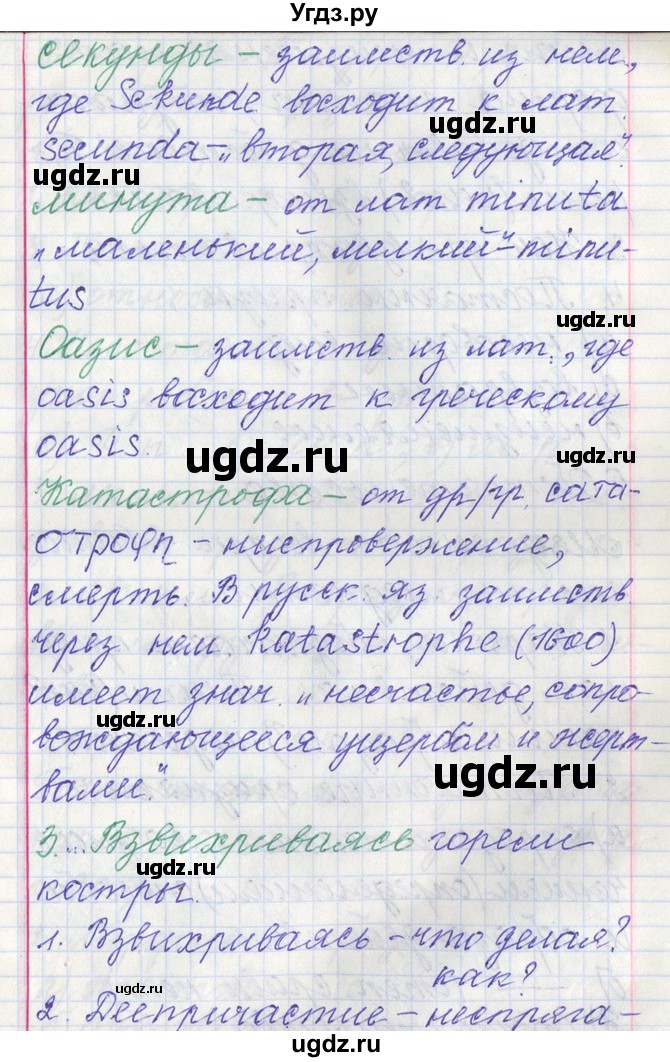 Угдз.ру
секунды – заимств. из нем,
где Sekunde восходит к лат.
ugdz.ru
secunda – „вторая, следующая".
ugdz.ru
минута – от лат minuta
„маленький, мелкий" – minu-
tus
ugdz.ru
Оазис – заимств. из лат., где
oasis восходит к греческому
oasis.
ugdz.ru
ugdz.ru
Катастрофа – от др/гр. cata-
отрофη – ниспровержение,
смерть. В русск. яз. заимств.
ugdz.ru
через нем. katastrophe (1600)
имеет знач. „несчастье, сопро-
ugdz.ru
вождающееся ущербом и жерт-
ugdz.ru
вами".
3. ...Взвихриваясь горели
ugdz.ru
костры.
ugdz.ru
1. Взвихриваясь – что делая?
как?
2. Деепричастие – неспряга-
ugdz.ru
ugdz.ru